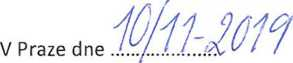 V Praze dne 10/11-2019